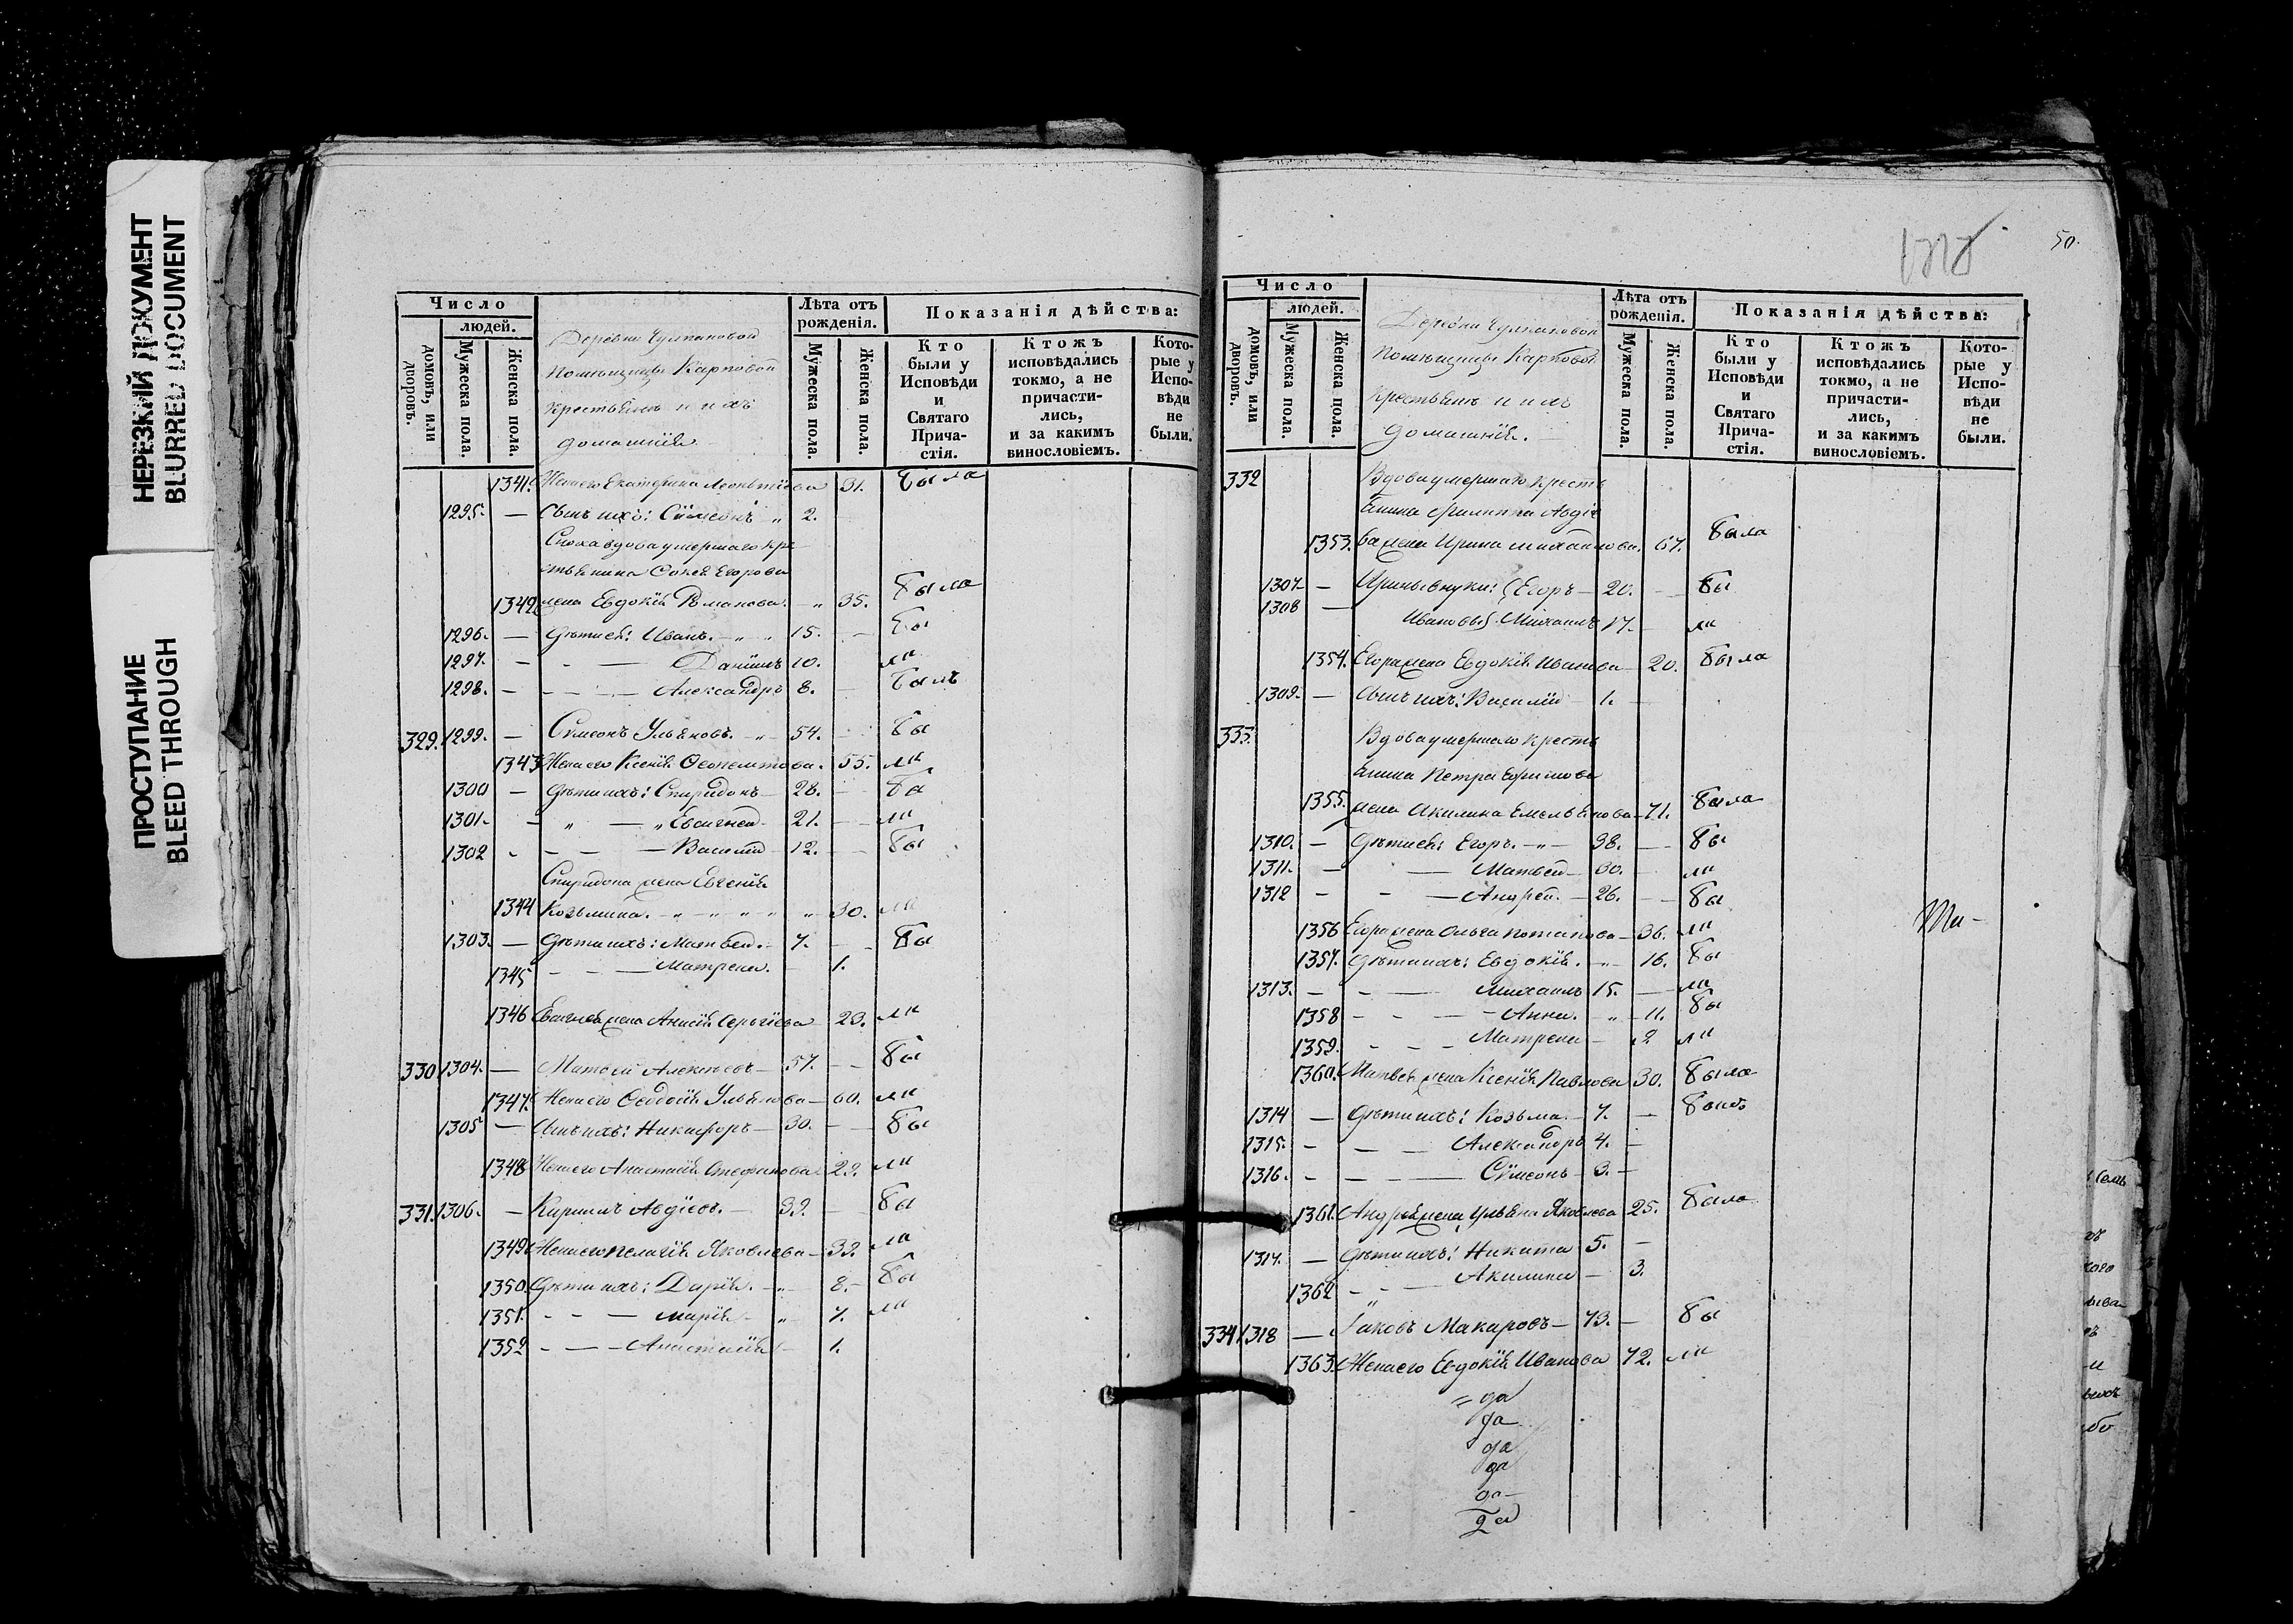 НЕРЕЗКИЙ ДОКУМЕНТ
BLURRED DOCUMENT
ПРОСТУПАНИЕ
BLEED THROUGH
Число
людей.
домовъ, или дворовъ.
Мужеска пола.
Женска пола.
Деревни Чулпановой
помѣщицы Карповой
крестьянъ и ихъ
домашнія
Лѣта отъ рожденія.
Мужеска пола.
Женска пола.
Показанія дѣйства:
Кто были у Исповѣди и Святаго Причастія.
Ктожъ исповѣдались токмо, а не причастились, и за какимъ винословіемъ.
Которые у Исповѣди не были.
1341. Жена его Екатерина Леонтіева 31. была
1295. — Сынъ ихъ: Сѵмеонъ „ 2.
Сноха вдова умершаго кре
стьянина Егорова
1342 жена Евдокія Романова. „ 35. была
1296. — Дѣти ея: Иванъ. 15. бы
1297. — Даніилъ 10. ли
1298. — Александръ 8. былъ
329. 1299. — Сѵмеонъ Ульяновъ. 54. бы
1343 Жена его Ксенія 55. ли
1300 — Дѣти ихъ: Спиридонъ 28. бы
1301. — „ Евсигней 21. ли
1302 — Василій 12. бы
Спиридона жена Евгенія
1344 Козьмина. „ 30. ли
1303. — Дѣти ихъ: Матвей. 7. бы
1345 — Матрена. 1.
1346 Евсигнея жена Анисія Сергіева 23. ли
330 1304. — Алексѣевъ 57. бы
1347. Жена его Феодосія Ульянова 60. ли
1305 — Сынъ ихъ: Никифоръ 30. бы
1348 Жена его Анастасія Стефанова 29. ли
331. 1306. — Кириллъ Авдіевъ. 33. бы
1349 Жена его Пелагія Яковлева 33. ли
1350. Дѣти ихъ: Дарія. „ 8. бы
1351. — Марія „ 7. ли
1352 — Анастасія 1.
50.
Число
людей.
домовъ, или дворовъ.
Мужеска пола.
Женска пола.
Деревни Чулпановой
помѣщицы Карповой
крестьянъ и ихъ
домашнія.
Лѣта отъ рожденія.
Мужеска пола.
Женска пола.
Показанія дѣйства:
Кто были у Исповѣди и Святаго Причастія.
Ктожъ исповѣдались токмо, а не причастились, и за какимъ винословіемъ.
Которые у Исповѣди не были.
332 Вдова умершаго кресть
янина Филиппа Авдіе
1353. ва жена Ирина Михаилова. 67. была
1307. — Ирины внуки: Егоръ 20. бы
1308 — Ивановы Михаилъ 17. ли
1354. Егора жена Евдокія Иванова 20. была
1309. — Сынъ ихъ: Василій 1.
333. Вдова умершаго кресть
янина Петра Ефимова
1355. жена Акилина Емельянова 71. была
1310. — Дѣти ея: Егоръ. 38. бы
1311. — Матвей 30. ли
1312 — Андрей. 26. бы
1356 Егора жена Ольга Потапова 36. ли
1357. Дѣти ихъ: Евдокія. 16. бы
1313. — Михаилъ 15. ли
1358 — Анна. „ 11. бы
1359. — Матрена 2 ли
1360. Матвея жена Ксенія Павлова 30. была
1314 — Дѣти ихъ: Козьма. 7. — былъ
1315. — Александръ 4. —
1316. — Сѵмеонъ 3. —
1361. Андрея жена Ульяна Яковлева 25. была
1317. — Дѣти ихъ: Никита 5. —
1362 — Акилина 3.
334 1318 — Іаковъ Макаровъ 73. — бы
1363. Жена его Евдокія Иванова 72. ли
да
да
да
да
да